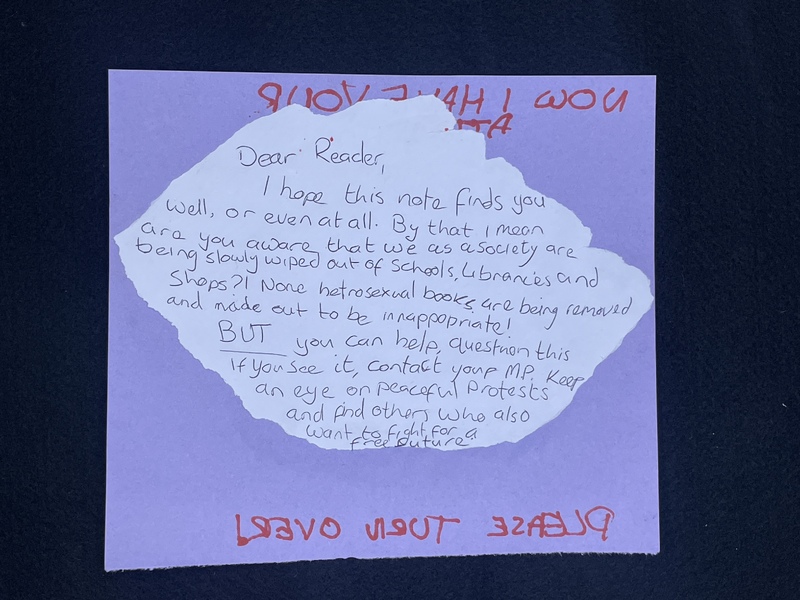 NOW I HAVE YOUR
Dear Reader,
I hope this note finds you
well, or even at all. By that i mean
are you aware that we as a society are
being slowly wiped out of Schools, Libraries and
Shops?! None hetrosexual books are being removed
and made out to be innappopriate!
BUT you can help, question this
if you see it, contact your M.P. Keep
an eye on peaceful protests
and find others who also
want to fight for a
free future
PLEASE TURN OVER!